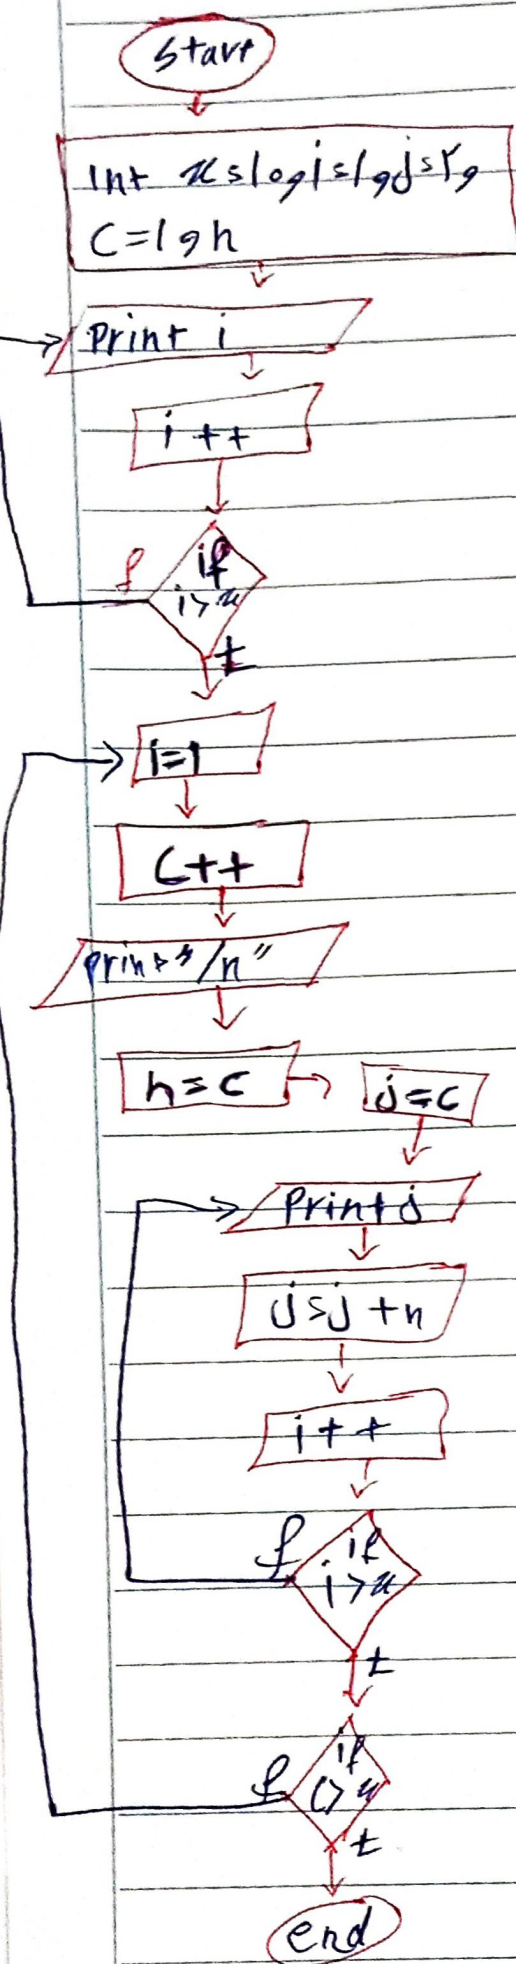 start
Int x=10,i=1,j=2,
C=1,n
print i
i++
f
if
i>x
t
i=1
C++
print"/n"
n=c
j=c
print j
j=j+n
i++
f
if
i>x
t
f
if
C>x
t
end